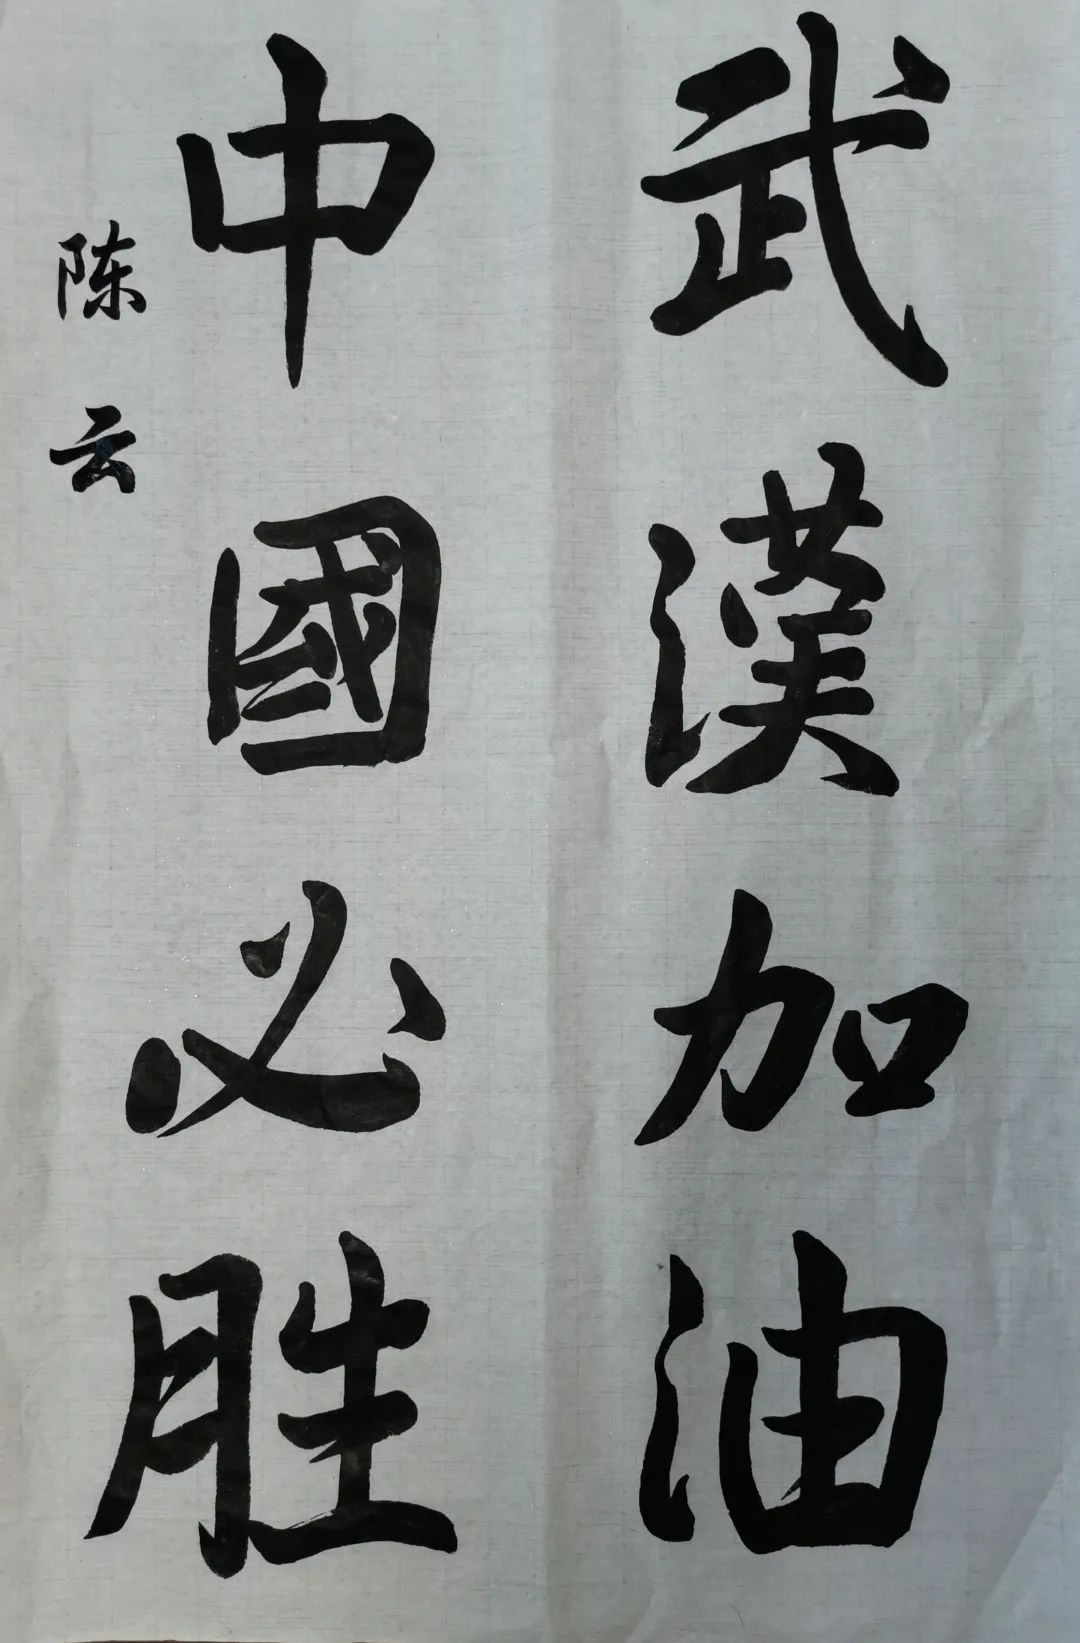 武漢加油
中國必胜
陈云